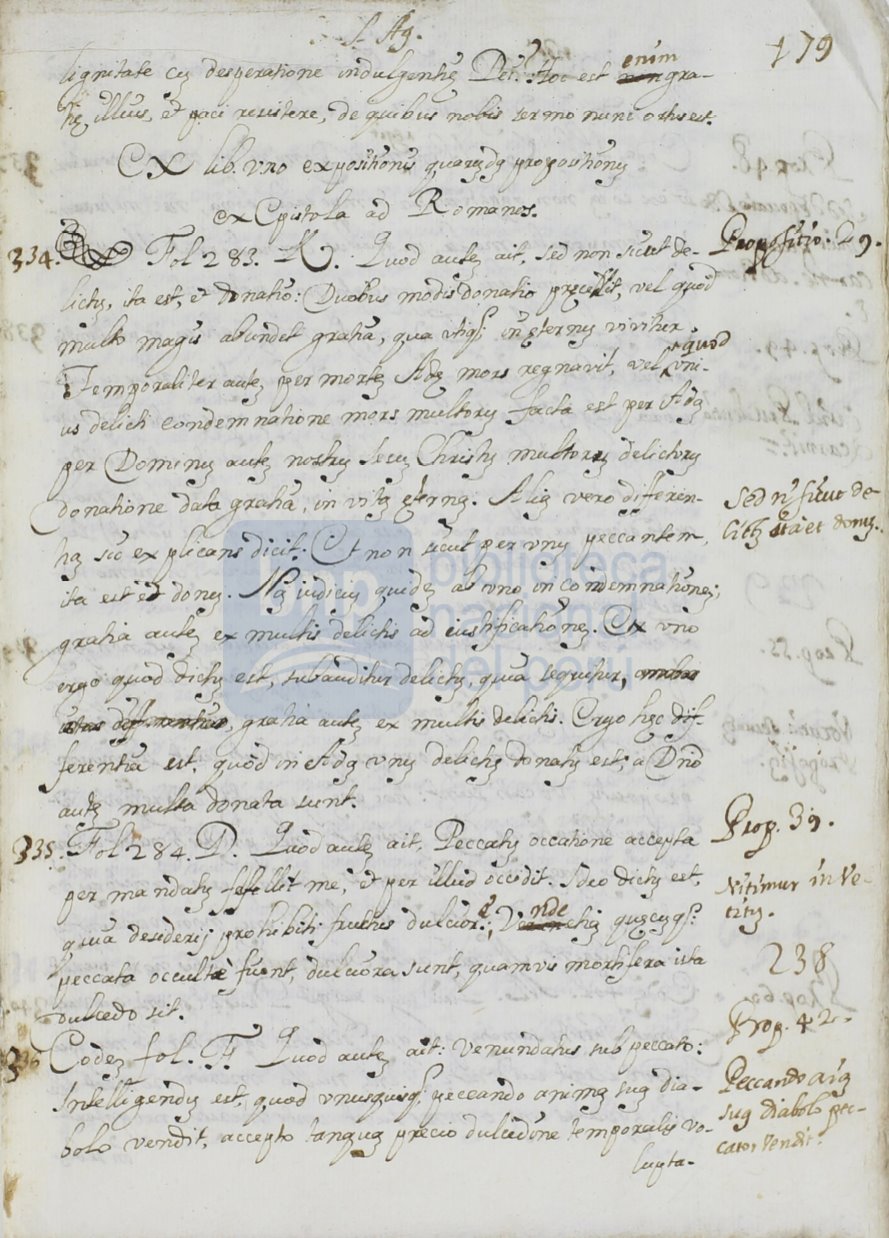 S. Ag.
179
lignitate cu desperatione indulgentię Dei. Hoc est enim gra-
tię illius, et paci resistere, de quibus nobis sermo nunc ortus est.
Ex lib. vno expositionis quarūdā propositionū
ex Epistola ad Romanos.
334. Fol 283. K. Quod autē ait, sed non sicut de- Propositio: 29.
lictū, ita est, et donatio: Duobus modis donatio precellit, vel quod
multo magis abundet gratia, qua vtiq; in ęternū vivitur
Temporaliter autē per mortē Adę mors regnavit, vel quod vni-
us delicti condemnatione mors multorū facta est per Adā
per Dominū autē nostrū Iesū Christū multorū delictorū
donatione data gratia, in vitā ęternā. Aliā vero differen-
tiā sic explicans dicit. Et non sicut per vnū peccantem,
Sed n sicut de-
lictū ita et donū.
ita est et donū. Nā iudiciū quidē ab vno in condemnationē;
gratia autē ex multis delictis ad iustificationē. Ex vno
ergo quod dictū est, subauditur delictū, quia sequitur,
gratia autē ex multis delictis. Ergo hęc dif-
ferentia est, quod in Adā vnū delictū donatū est, a Dno
autē multa donata sunt.
335. Fol 284. D. Quod autē ait, Peccatū occatione accepta
Prop. 39.
per mandatū fefellit me, et per illud occidit. Ideo dictū est,
quia desiderij prohibiti fructus dulcior ē, Vnde etiā quęcūq;
Nitimur in ve-
titū.
peccata occultè fiunt, dulciora sunt, quamvis mortifera ista
238
dulcedo sit.
336 Eodē fol. F. Quod autē ait: Venundatus sub peccato:
Prop. 42.
Intelligendū est, quod vnusquisq; peccando animā suā dia-
bolo vendit, accepto tanquā precio dulcedine temporalis vo-
Peccando aīā
suā diabolo pec-
cator vendit.
lupta-